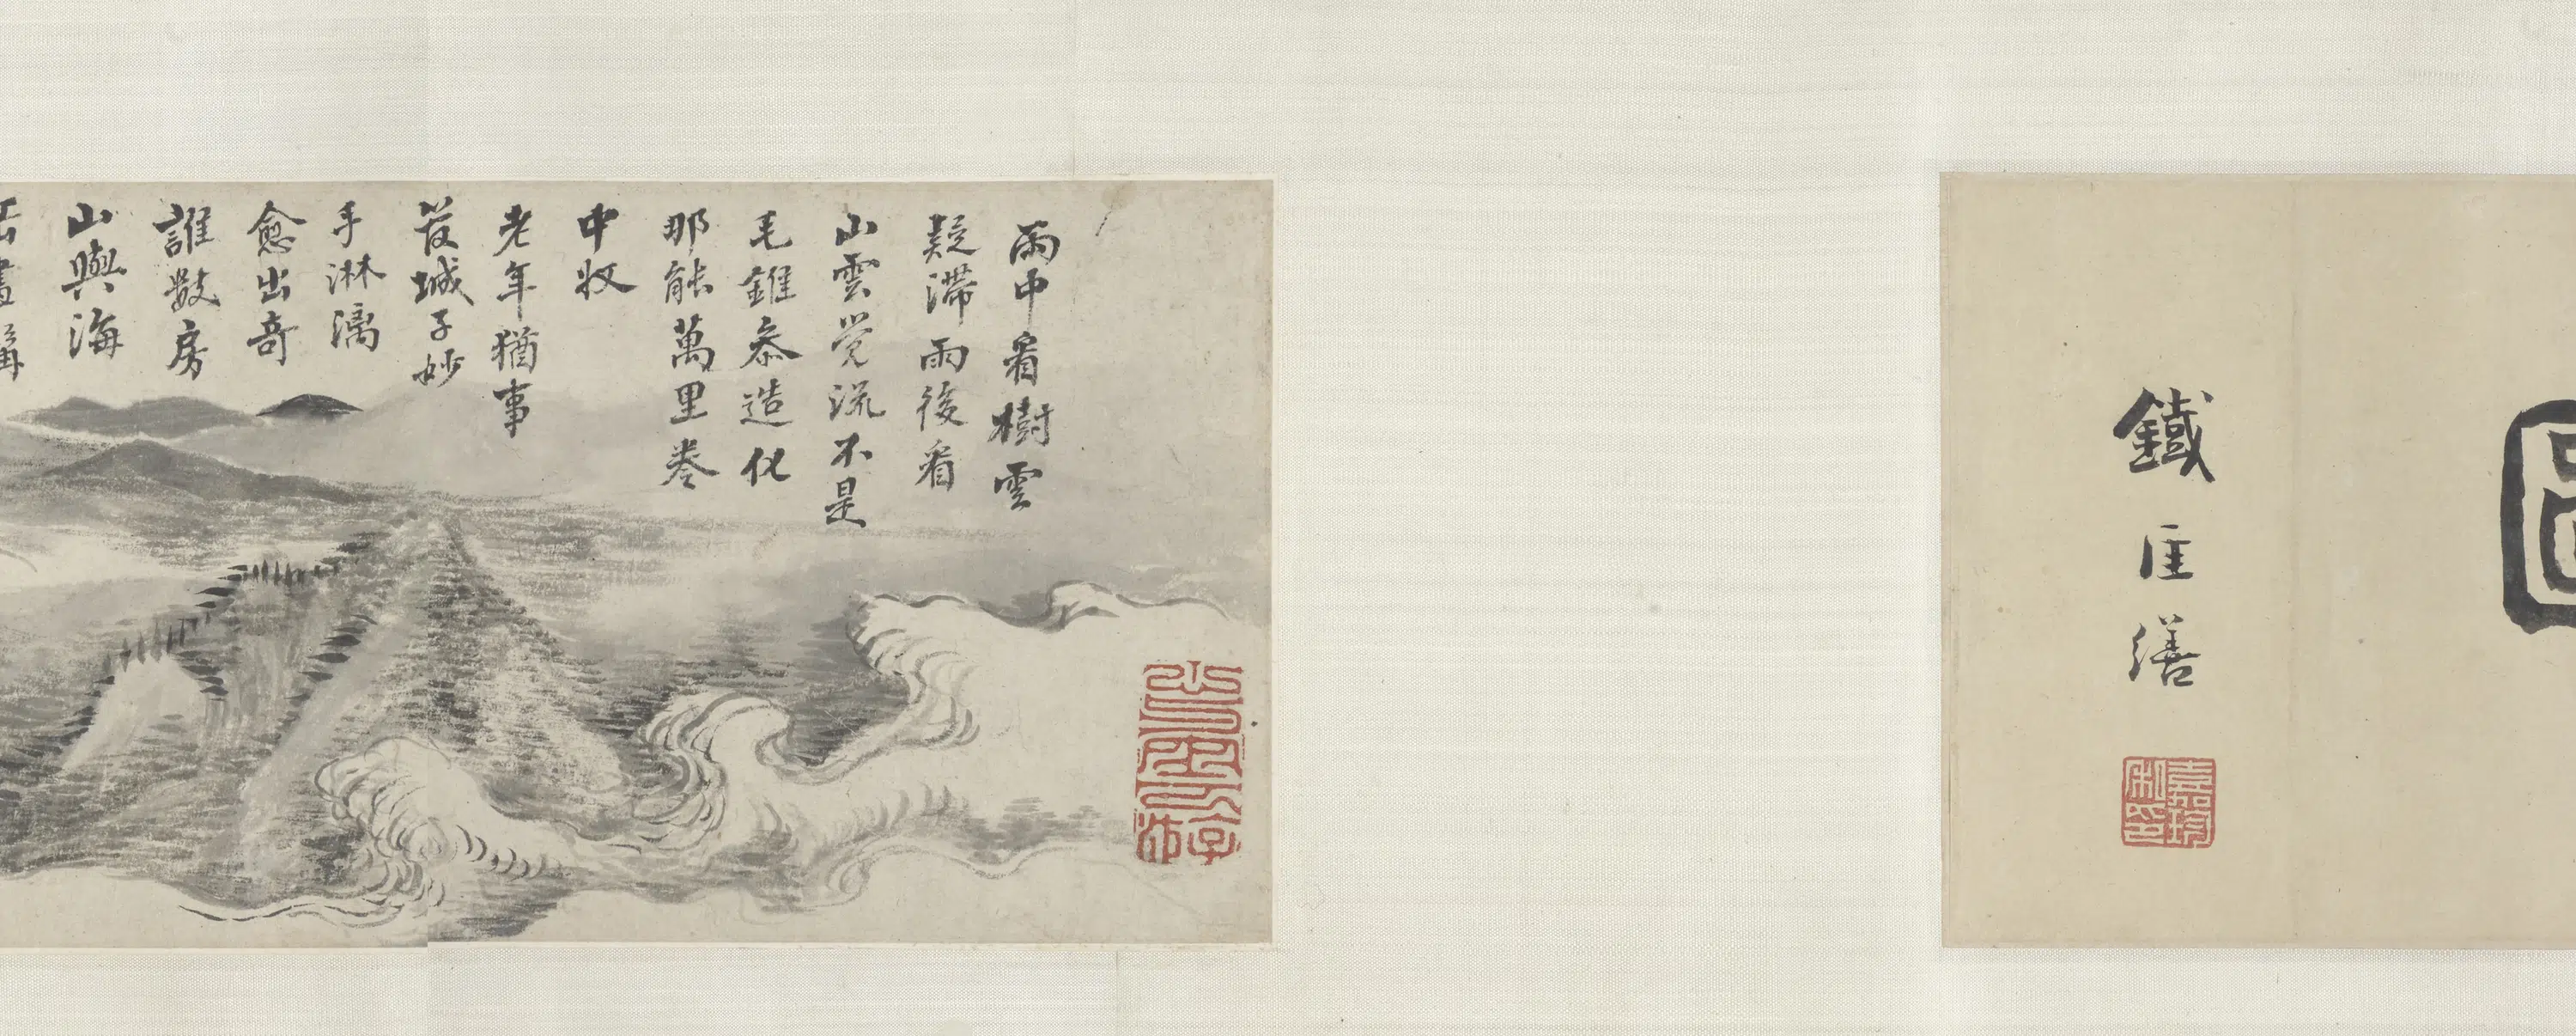 圖
鐵厓繕
嘉珍
私印
雨中看樹雲
疑滯雨後看
山雲觉流不是
毛錐叅造化
那能萬里卷
中收
老年猶事
管城子妙
手淋漓
愈出奇
誰數房
山與海